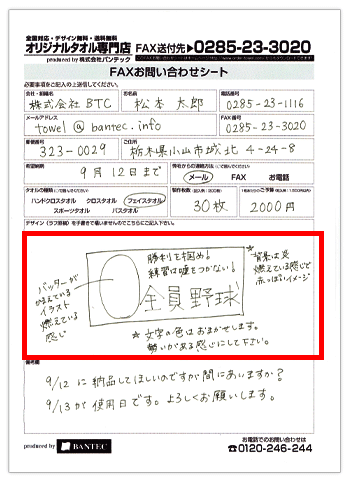 全国対応・デザイン無料・送料無料
オリジナルタオル専門店 FAX送付先▶0285-23-3020
produced by 株式会社バンテック
FAXお問い合わせシート
必要事項をご記入の上送信してください。
会社・団体名 お名前 電話番号
株式会社 BTC 松本 太郎 0285-23-1116
メールアドレス FAX番号
towel@bantec.info 0285-23-3020
郵便番号 ご住所
323-0029 栃木県小山市城北 4-24-8
希望納期
9月12日まで メール FAX お電話
タオルの種類
製作枚数
ハンドクロスタオル クロスタオル フェイスタオル
スポーツタオル バスタオル
30枚 2000円
デザイン(ラフ原稿)を手書きで構いませんのでこちらにご記入下さい。
バッターが
かまえている
イラスト
燃えている
感じ
勝利を掴め!
練習は嘘をつかない!
全員野球
★背景は炎
燃えている感じで
赤っぽいイメージ
★文字の色はおまかせします。
勢いがある感じにして下さい。
備考欄
9/12に納品してほしいのですが間にあいますか?
9/13が使用日です。よろしくお願いします。
produced by BANTEC
お電話でのお問い合わせは
☎0120-246-244